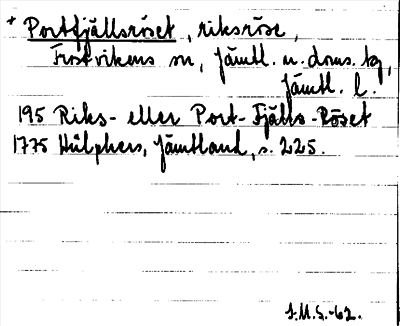 + Portfjällsröset, riksröse,
Frostvikens sn, Jämtl. n. doms. tg,
Jämtl. l.
195 Riks- eller Port-Fjälls-Röset
1775 Hülphers, Jämtland, s. 225.
J.M.S.-62.